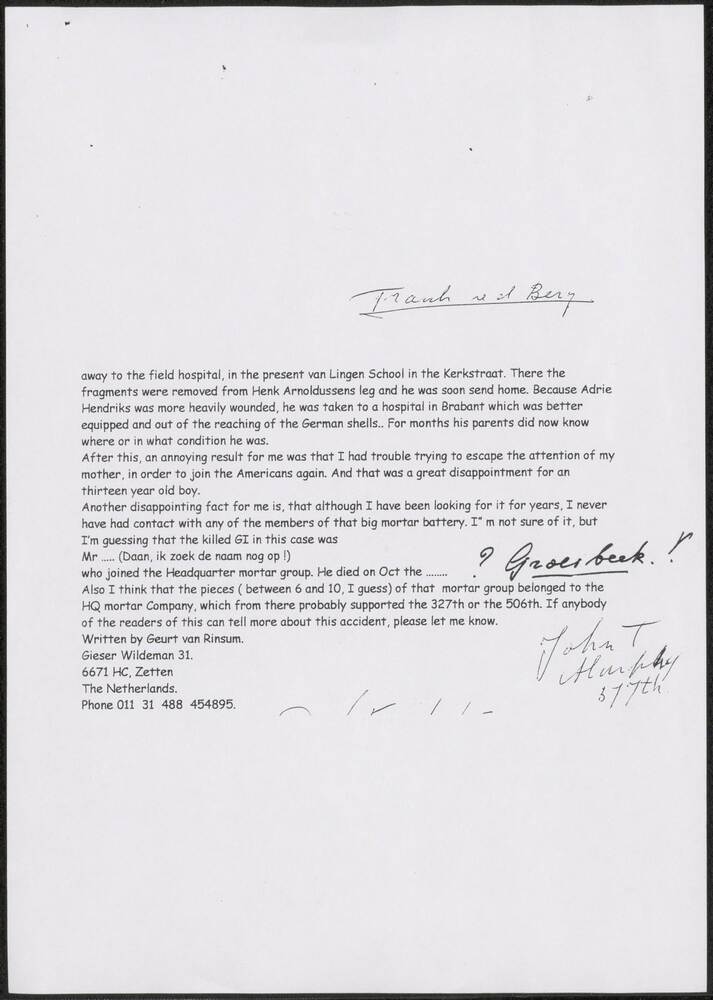 Frank v d Berg
away to the field hospital, in the present van Lingen School in the Kerkstraat. There the
fragments were removed from Henk Arnoldussens leg and he was soon send home. Because Adrie
Hendriks was more heavily wounded, he was taken to a hospital in Brabant which was better
equipped and out of the reaching of the German shells.. For months his parents did now know
where or in what condition he was.
After this, an annoying result for me was that I had trouble trying to escape the attention of my
mother, in order to join the Americans again. And that was a great disappointment for an
thirteen year old boy.
Another disappointing fact for me is, that although I have been looking for it for years, I never
have had contact with any of the members of that big mortar battery. I" m not sure of it, but
I'm guessing that the killed GI in this case was
Mr ..... (Daan, ik zoek de naam nog op !)
? Groesbeek. !
who joined the Headquarter mortar group. He died on Oct the ........
Also I think that the pieces ( between 6 and 10, I guess) of that mortar group belonged to the
HQ mortar Company, which from there probably supported the 327th or the 506th. If anybody
of the readers of this can tell more about this accident, please let me know.
Written by Geurt van Rinsum.
Gieser Wildeman 31.
6671 HC, Zetten
The Netherlands.
Phone 011 31 488 454895.
John T
Murphy
377th